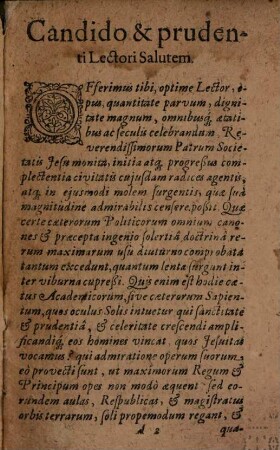 Candido & pruden-
ti Lectori Salutem.
OFferimus tibi, optime Lector, o-
pus, quantitate parvum, digni-
tate magnum, omnibusq, ætati-
bus ac seculis celebrandum. Re-
verendissimorum Patrum Socie-
tatis Jesu monita, initia atq, progressus com-
plectentia civitatis ejusdam radices agentis,
atq, in ejusmodi molem surgentis, quæ suâ
magnitudine admirabilis censeri possit. Quæ
certe cæterorum Politicorum omnium cano-
nes & præcepta ingenio solertiâ doctrinâ re-
rum maximarum usu diuturno comprobata
tantum excedunt, quantum lenta surgunt in-
ter viburna cupressi. Quis enim est hodie cæ-
tus Academicorum, sive cæterorum Sapien-
tum, ques oculus Solis intuetur qui sanctitate
& prudentiâ, & celeritate crescendi ampli-
ficandiq, eos homines vincat, quos Jesuitas
vocamus? qui admiratione operum suorum,
eo provecti sunt, ut maximorum Regum &
Principum opes non modò æquent sed eo-
rundem aulas, Respublicas, & magistratus
orbis terrarum, soli propemodum regant, &
A 2 qua-